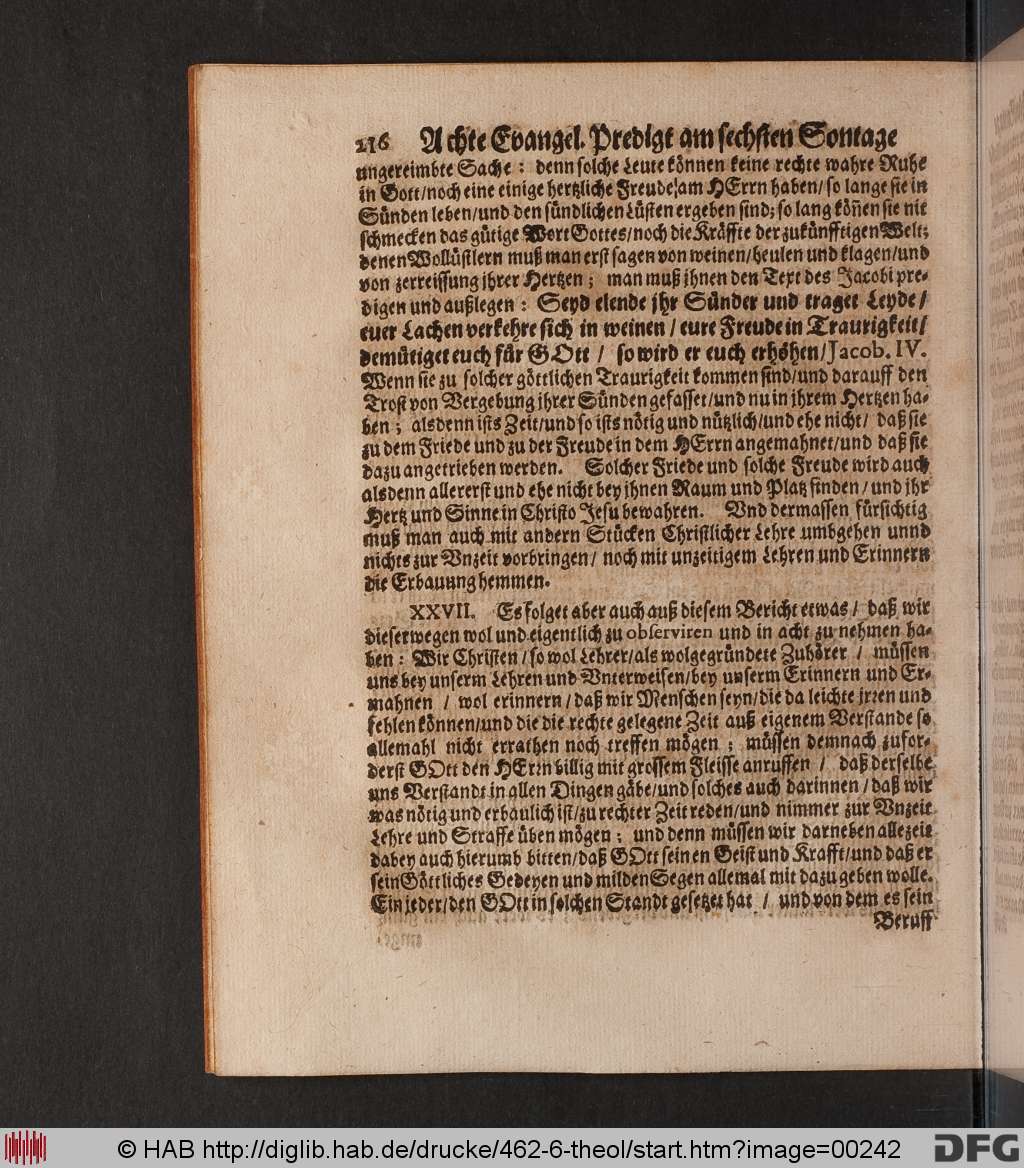 216 Achte Evangel. Predigt am sechsten Sontage
ungereimbte Sache: denn solche Leute können keine rechte wahre Ruhe
in Gott/noch eine einige hertzliche Freude am HErrn haben/ so lange sie in
Sünden leben/und den sündlichen Lüsten ergeben sind; so lang köñen sie nit
schmecken das gütige Wort Gottes/noch die Kräffte der zukünfftigen Welt;
denen Wollüstlern muß man erst sagen von weinen/heulen und klagen/und
von zerreissung jhrer Hertzen; man muß jhnen den Text des Jacobi pre-
digen und außlegen: Seyd elende jhr Sünder und traget Leyde/
euer Lachen verkehre sich in weinen / eure Freude in Traurigkeit/
demütiget euch für GOtt / so wird er euch erhöhen/Jacob. IV.
Wenn sie zu solcher göttlichen Traurigkeit kommen sind/und darauff den
Trost von Vergebung jhrer Sünden gefasset/und nu in jhrem Hertzen ha-
ben; alsdenn ists Zeit/und so ists nötig und nützlich/und ehe nicht/ daß sie
zu dem Friede und zu der Freude in dem HErrn angemahnet/und daß sie
dazu angetrieben werden. Solcher Friede und solche Freude wird auch
alsdenn allererst und ehe nicht bey jhnen Raum und Platz finden/und jhr
Hertz und Sinne in Christo Jesu bewahren. Vnd dermassen fürsichtig
muß man auch mit andern Stücken Christlicher Lehre umbgehen unnd
nichts zur Vnzeit vorbringen/ noch mit unzeitigem Lehren und Erinnern
die Erbauung hemmen.
XXVII. Es folget aber auch auß diesem Bericht etwas/ daß wir
dieserwegen wol und eigentlich zu observiren und in acht zu nehmen ha-
ben: Wir Christen/so wol Lehrer/als wolgegründete Zuhörer / müssen
uns bey unserm Lehren und Vnterweisen/bey unserm Erinnern und Er-
mahnen / wol erinnern/daß wir Menschen seyn/die da leichte jrren und
fehlen können/und die die rechte gelegene Zeit auß eigenem Verstande so
allemahl nicht errathen noch treffen mögen; müssen demnach zufor-
derst GOtt den HErrn billig mit grossem Fleisse anruffen / daß derselbe
uns Verstandt in allen Dingen gäbe/und solches auch darinnen/daß wir
was nötig und erbaulich ist/zu rechter Zeit reden/und nimmer zur Vnzeit
Lehre und Straffe üben mögen; und denn müssen wir darneben allezeit
dabey auch hierumb bitten/daß GOtt seinen Geist und Krafft/und daß er
sein Göttliches Gedeyen und milden Segen allemal mit dazu geben wolle.
Ein jeder/den GOtt in solchen Standt gesetzet hat / und von dem es sein
Beruff
© HAB http://diglib.hab.de/drucke/462-6-theol/start.htm?image=00242
DFG